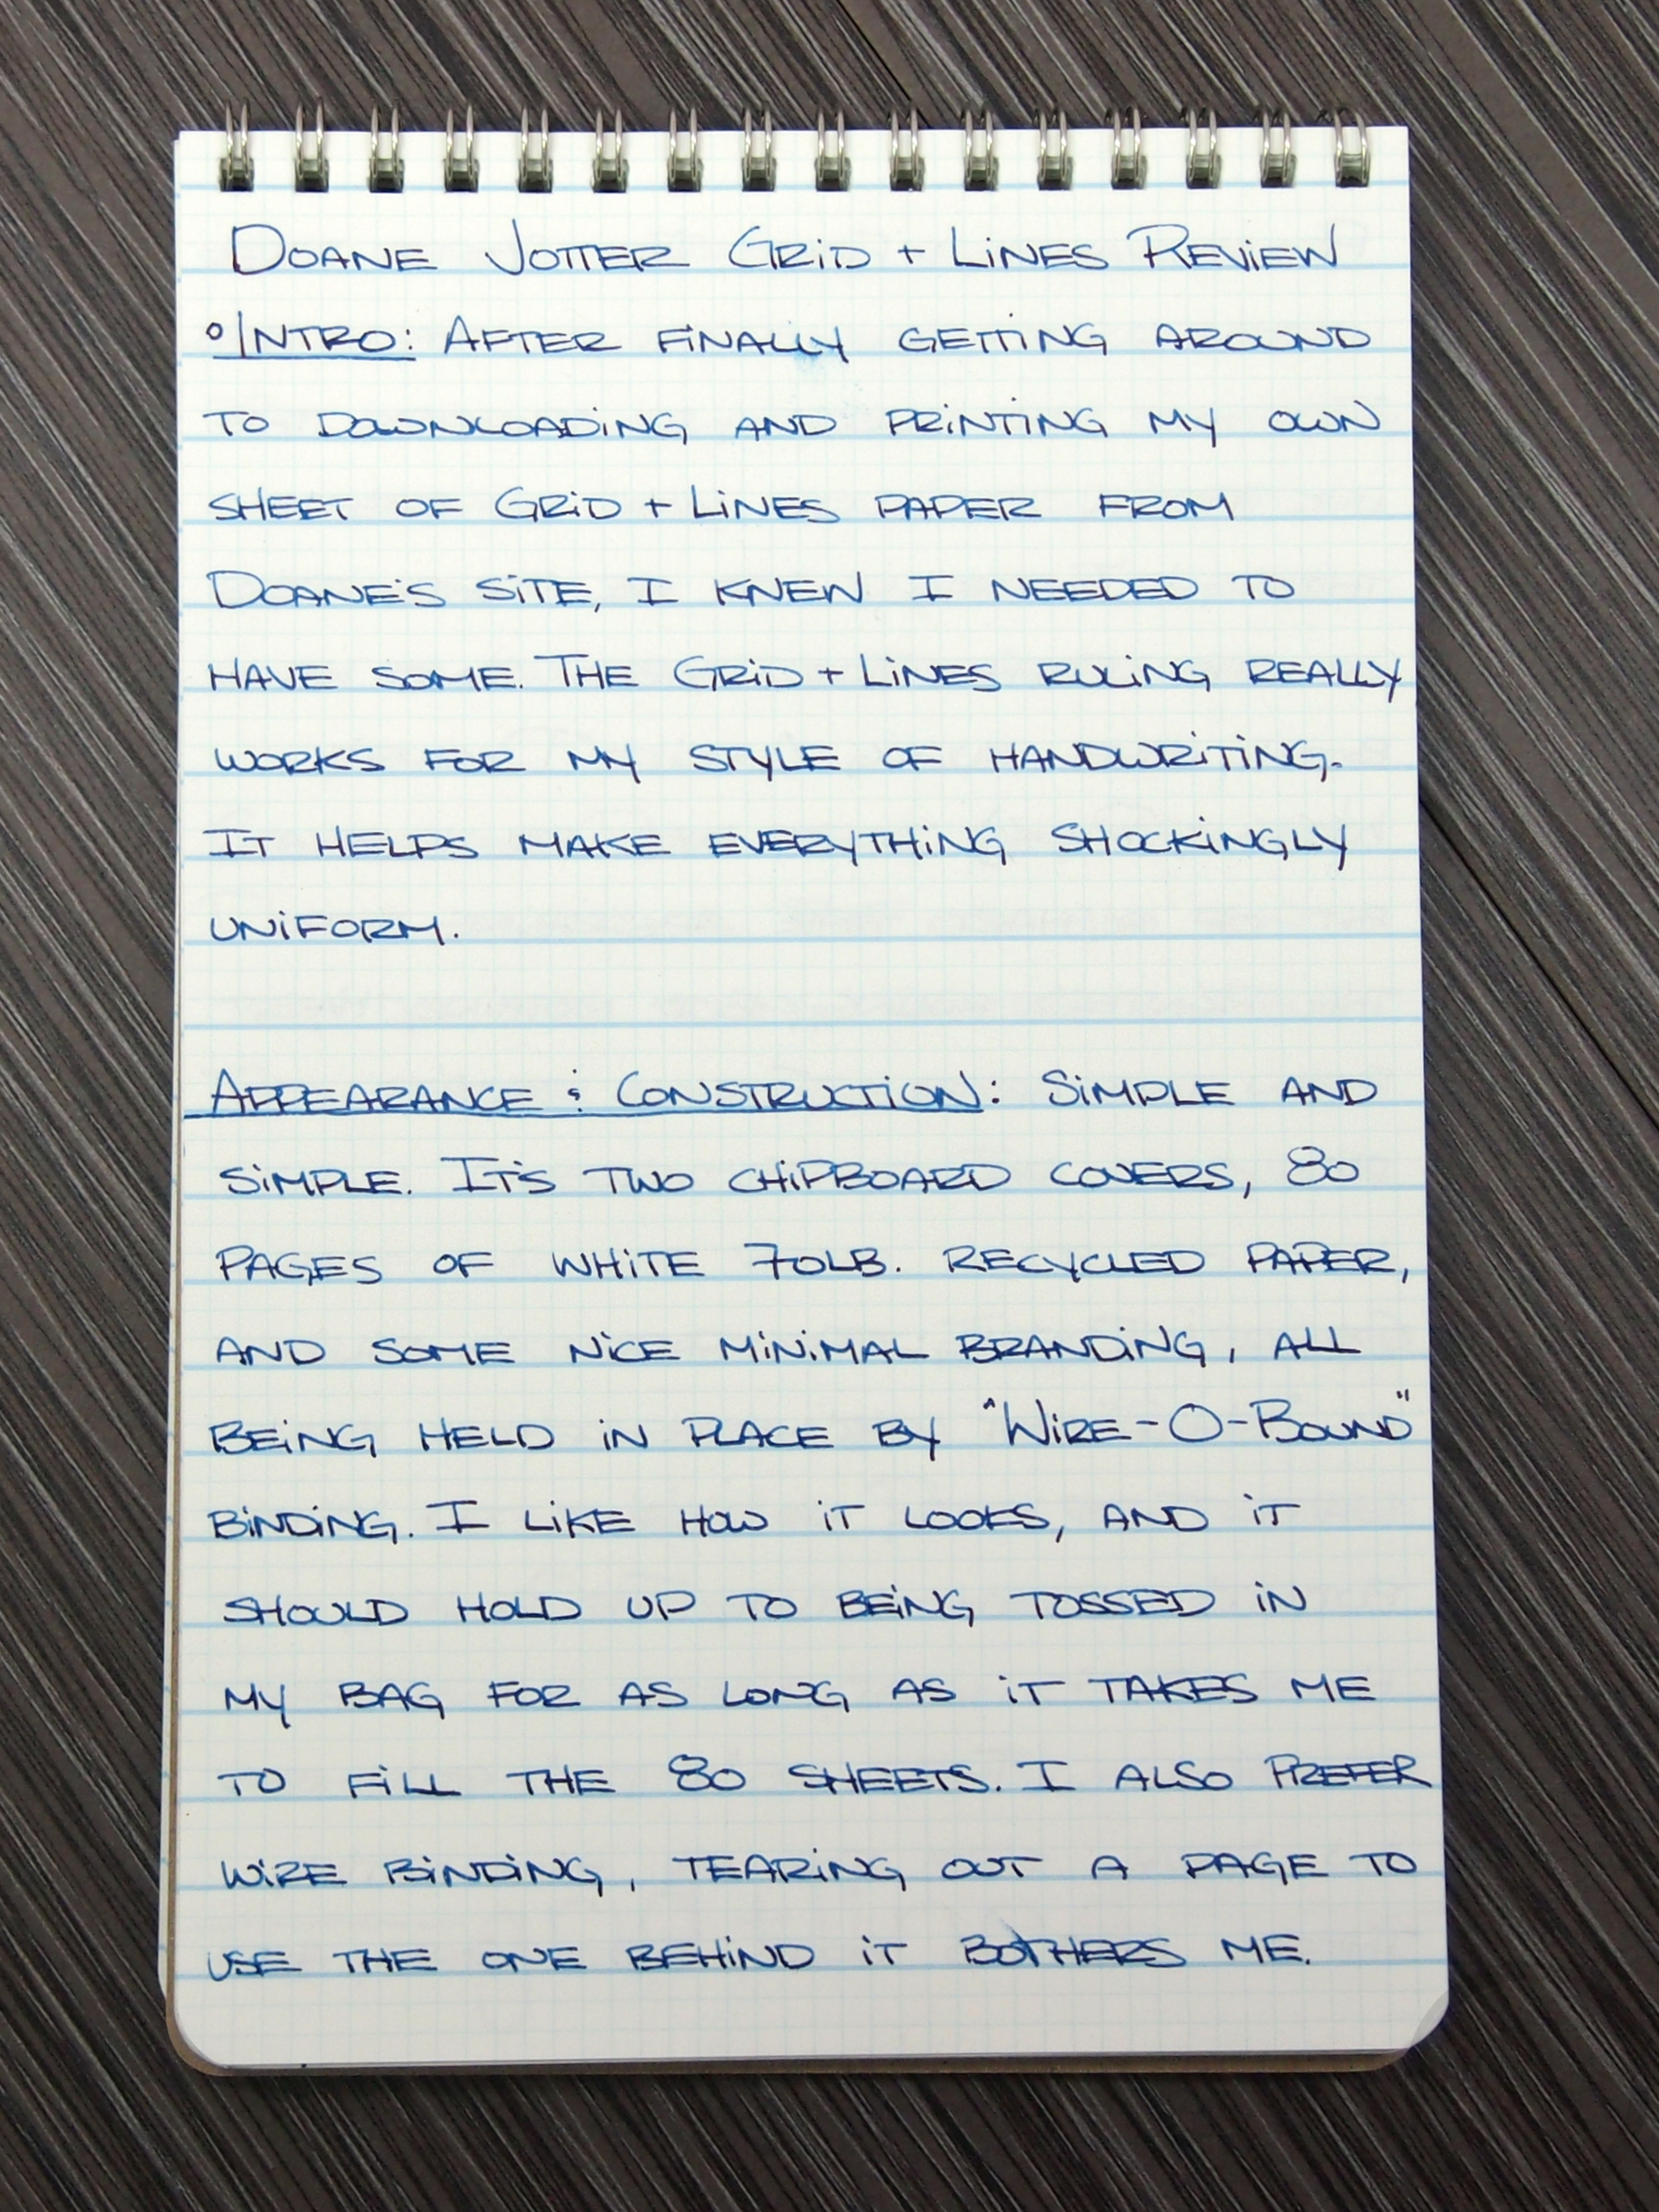 DOANE JOTTER GRiD + LiNES REViEW
°INTRO: AFTER FiNALLY GETTiNG AROUND
TO DOWNLOADiNG AND PRiNTiNG MY OWN
SHEET OF GRiD + LiNES PAPER FROM
DOANE'S SiTE, I KNEW I NEEDED TO
HAVE SOME. THE GRiD + LiNES RULiNG REALLY
WORKS FOR MY STYLE OF HANDWRiTiNG.
IT HELPS MAKE EVERYTHiNG SHOCKiNGLY
UNiFORM.
APPEARANCE & CONSTRUCTiON: SiMPLE AND
SiMPLE. IT'S TWO CHiPBOARD COVERS, 80
PAGES OF WHiTE 70LB. RECYCLED PAPER,
AND SOME NiCE MiNiMAL BRANDiNG, ALL
BEiNG HELD iN PLACE BY "WiRE-O-BOUND"
BiNDiNG. I LiKE HOW iT LOOKS, AND iT
SHOULD HOLD UP TO BEiNG TOSSED iN
MY BAG FOR AS LONG AS iT TAKES ME
TO FiLL THE 80 SHEETS. I ALSO PREFER
WiRE BiNDiNG, TEARiNG OUT A PAGE TO
USE THE ONE BEHiND iT BOTHERS ME.